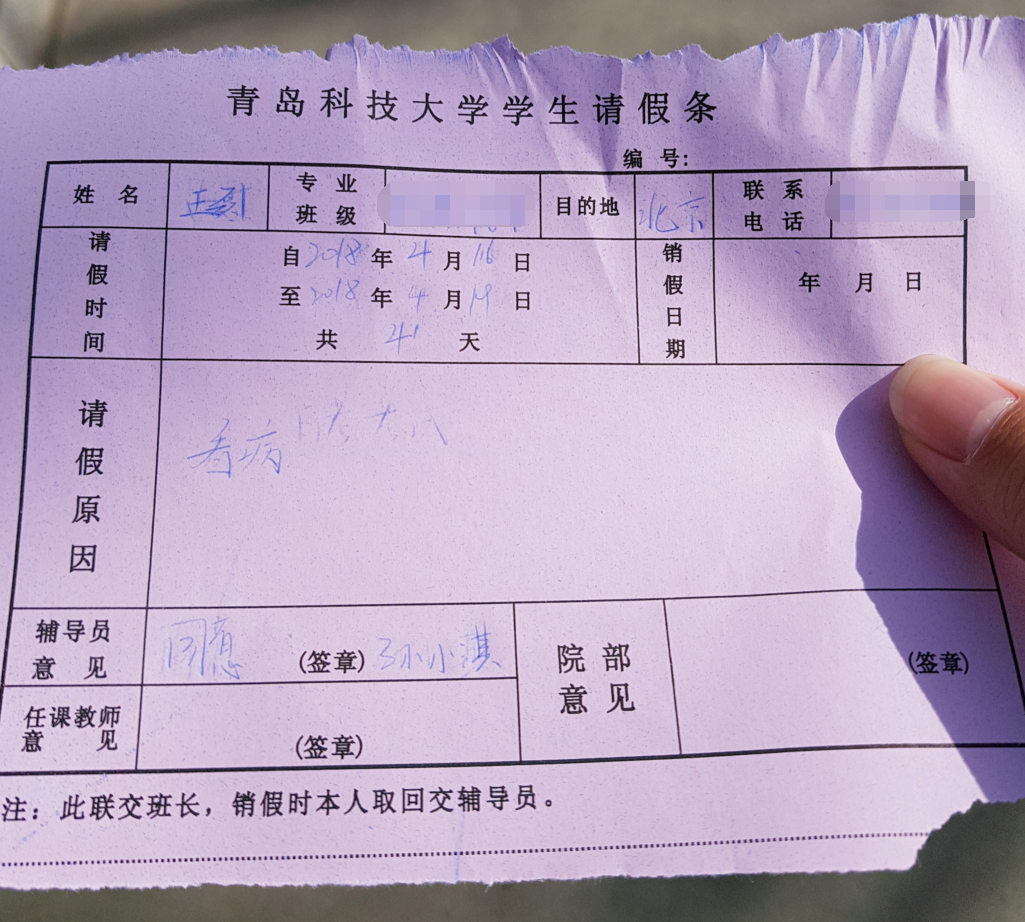 青岛科技大学学生请假条
编号:
姓名 专业班级 目的地 北京 联系电话
请假时间 自2018年4月16日 销假日期 年 月 日
至2018年4月19日
共 4 天
请假原因 看病
辅导员意见 同意 (签章) 孙小淇 院部意见 (签章)
任课教师意见 (签章)
注：此联交班长，销假时本人取回交辅导员。